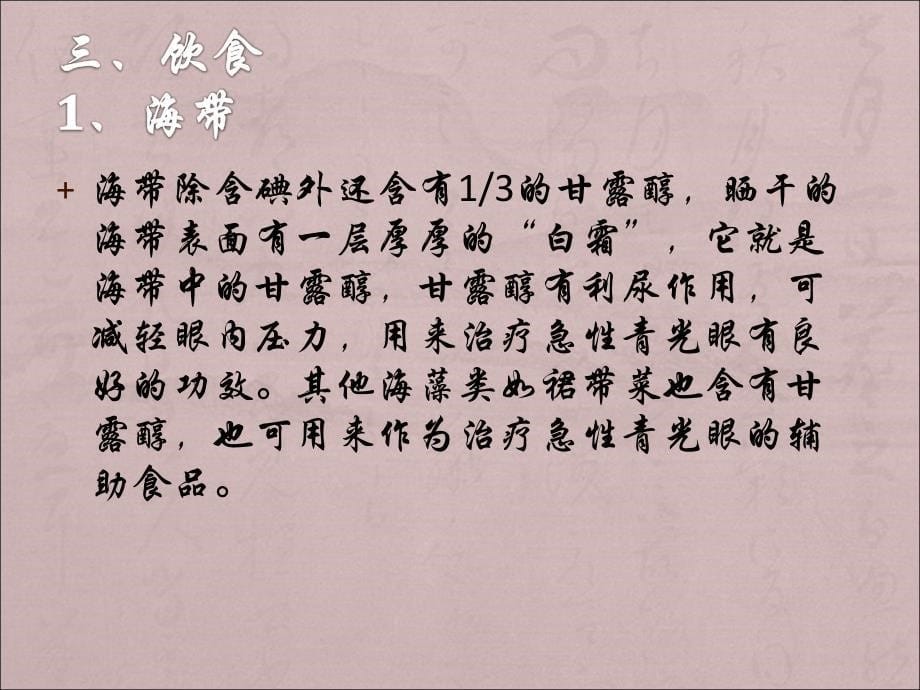 三、饮食
1、海带
+ 海带除含碘外还含有1/3的甘露醇，晒干的
海带表面有一层厚厚的“白霜”，它就是
海带中的甘露醇，甘露醇有利尿作用，可
减轻眼内压力，用来治疗急性青光眼有良
好的功效。其他海藻类如裙带菜也含有甘
露醇，也可用来作为治疗急性青光眼的辅
助食品。